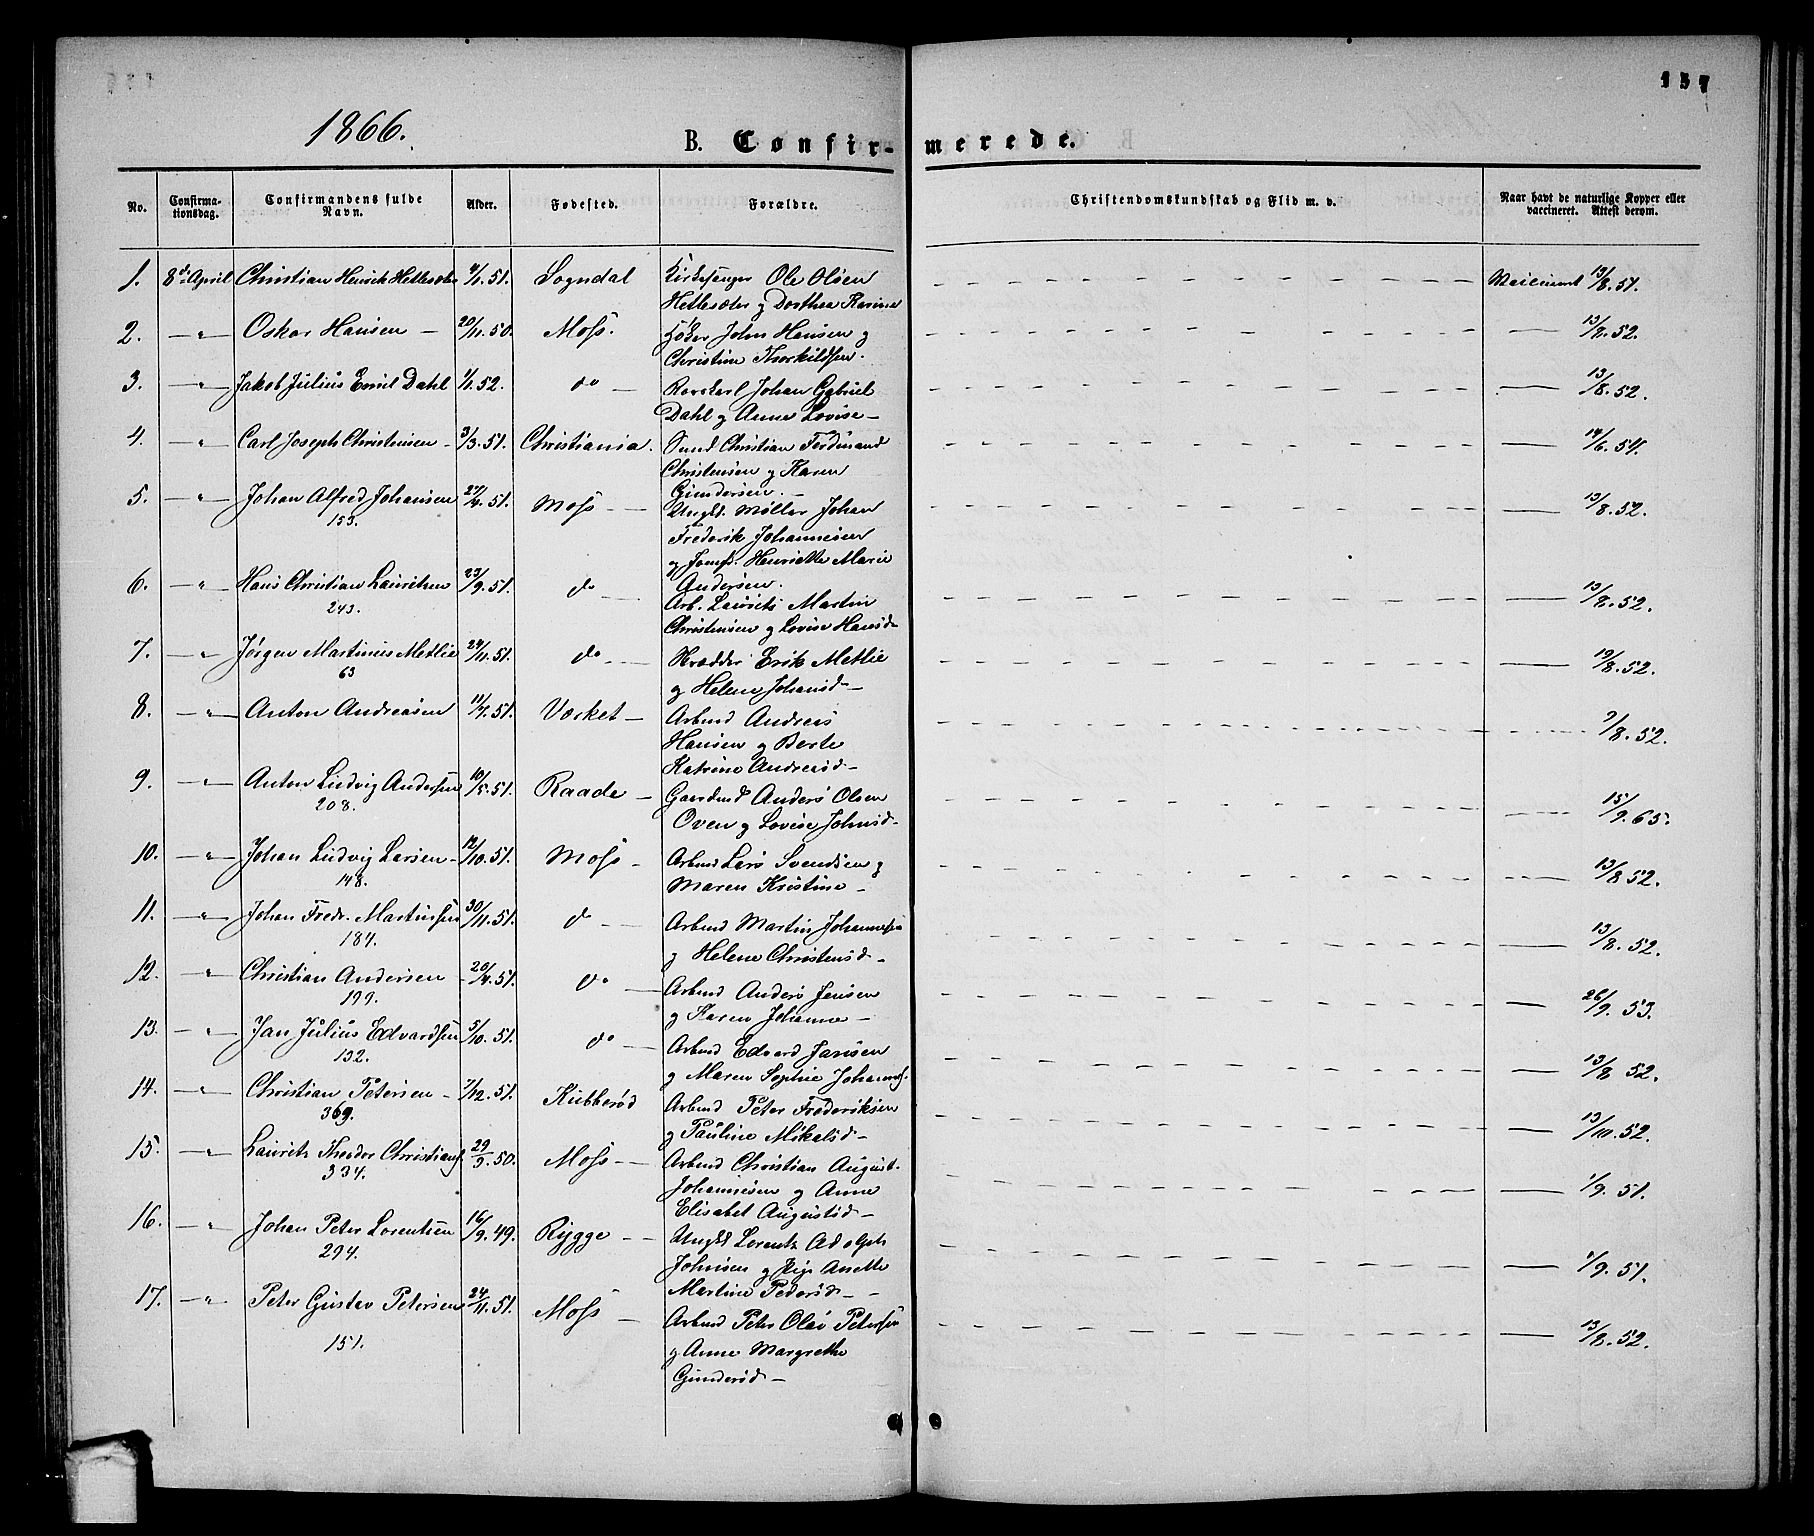 137
1866.
B. Confir- merede.
No. Confirma-tionsdag. Confirmandens fulde Navn. Alder. Fødested. Forældre. Christendomskundskab og Flid m. v. Naar havt de naturlige Kopper eller vaccineret. Attest derom.
1. 8de April Christian Henrik Hetlesæter 4/1.51. Sogndal Kirkesanger Ole Olsen 13/8.51.
Hetlesæter og Dorthea Karine
2. — " — Oskar Hansen — 20/11.50. Moss. John Hansen og — 13/8.52.
Christine Thorkildsen.
3. — " — Jakob Julius Emil Dahl 1/1.52. do — Johan Gabriel — 13/8.52.
Dahl og Anne Lovise —
4. — " — Carl Joseph Christensen - 3/3.51. Christiania. Christian Ferdinand — 14/6.51.
Christensen og Karen
Gundersen. —
5. — " — Johan Alfred Johansen 27/4.51. Moss — Ungk. Møller Johan — 13/8.52.
153. Frederik Johannesen
og Jomf. Henriette Marie
Andersen.
6. — " — Hans Christian Lauritsen 23/9.51. do — Arb. Laurits Martin — 13/8.52.
243. Christensen og Lovise Hansd.
7. — " — Jørgen Martinius Metlie 24/11.51. do — Erik Metlie — 19/8.52.
63 og Helene Johansd —
8. — " — Anton Andreasen 11/4.51. Værket — Arbmd Andreas — 9/8.52.
Hansen og Berte
Katrine Andreasd —
9. — " — Anton Ludvig Andersen 10/5.51. Raade — Gaardmd Anders Olsen — 15/9.65.
208. Oven og Lovise Johnsd —
10. — " — Johan Ludvig Larsen - 12/10.51. Moss — Arbmd Lars Svendsen og — 13/8.52.
148. Maren Kristine —
11. — " — Johan Fredr. Martinsen 30/11.51. do — Arbmd Martin Johannesen — 13/8.52.
184. og Helene Christensd —
12. — " — Christian Andersen - 20/4.51. do — Arbmd Anders Jensen — 26/9.53.
199. og Karen Johanne —
13. — " — Jan Julius Edvardsen 5/10.51. do — Arbmd Edvard Jansen — 13/8.52.
132. og Maren Sophie Johannes.
14. — " — Christian Petersen - 7/12.51. Kubberød Arbmd Peter Frederiksen — 13/10.52.
369. og Pauline Mikelsd —
15. — " — Laurits Theodor Christians. 29/3.50. Moss — Arbmd Christian August — 1/9.51.
334. Johannesen og Anne
Elisabet Augustsd —
16. — " — Johan Peter Lorentsen 16/9.49. Rygge — Ungkl Lorentz Adolph — 1/9.51.
294. Johnsen og Pige Anette
Martine Pedersd —
17. — " — Peter Gustav Petersen 24/11.51. Moss — Arbmd Peter Olav Petersen — 13/8.52.
151. og Anne Margrethe
Gundersd —